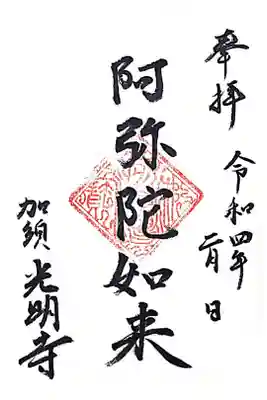 奉拝
令和四年
二月 日
阿弥陀如来
加須 光明寺